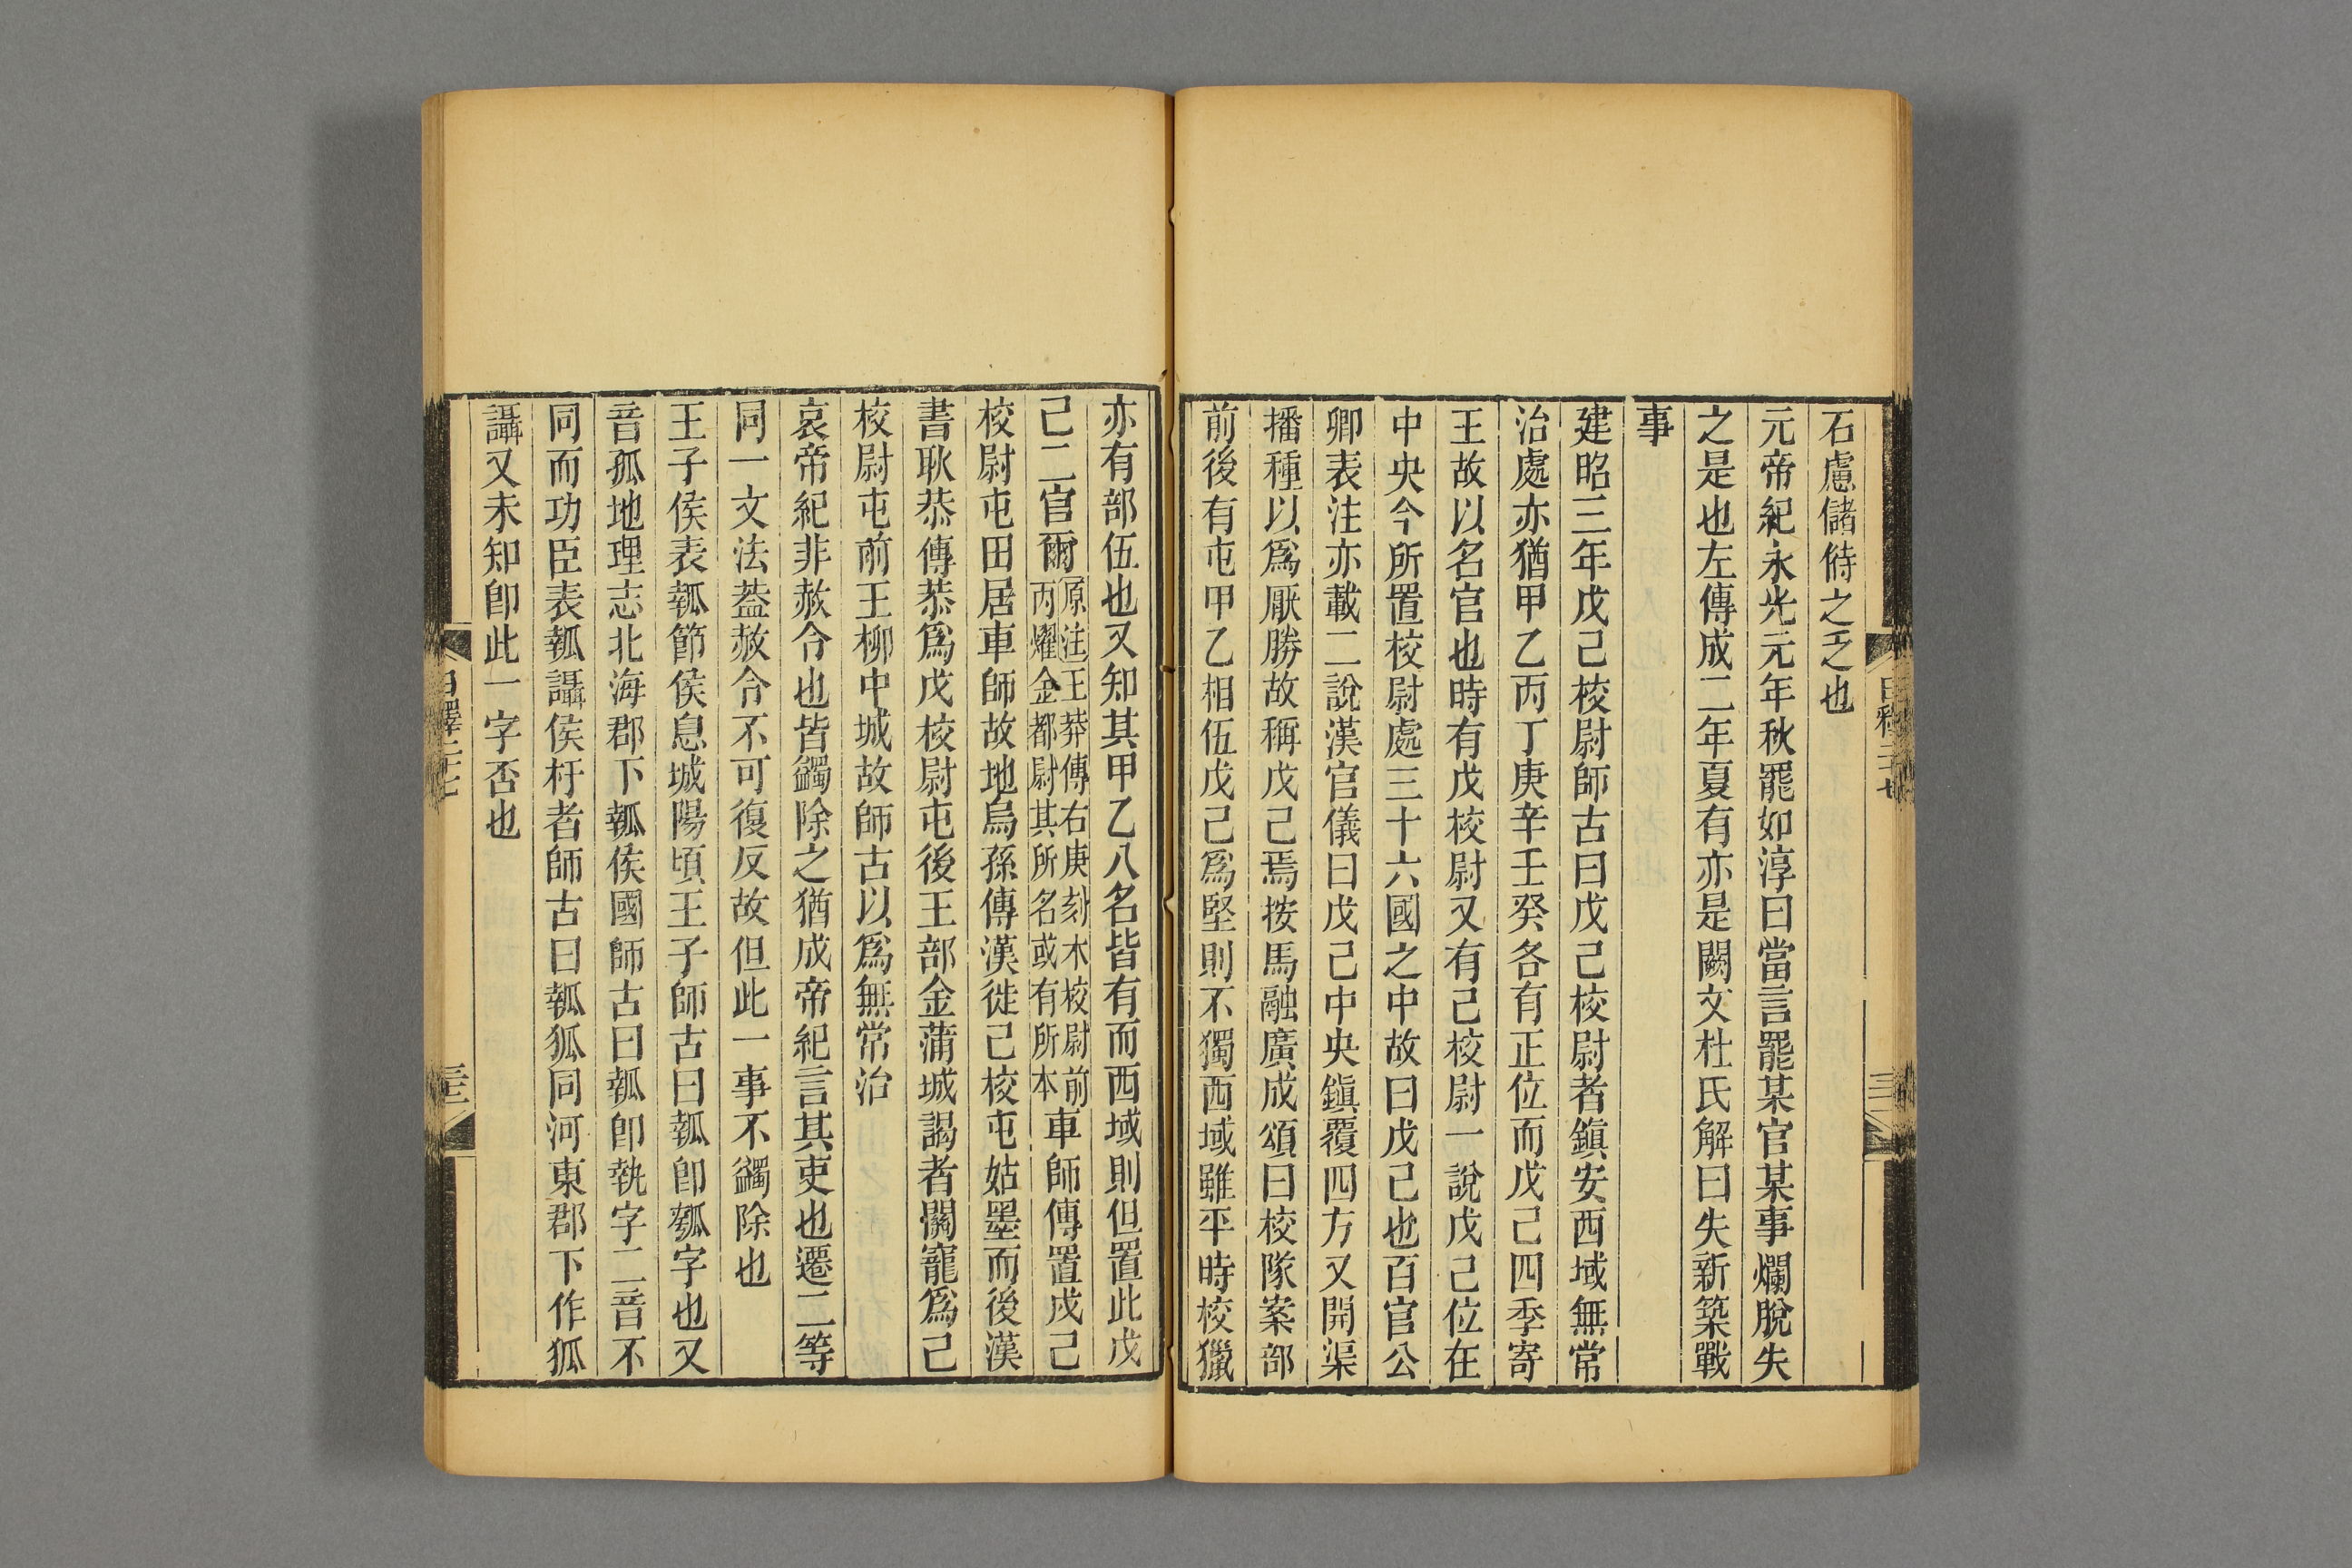 石慮儲偫之乏也
元帝紀永光元年秋罷如淳曰當言罷某官某事爛脫失
之是也左傳成二年夏有亦是闕文杜氏解曰失新築戰
事
建昭三年戊己校尉師古曰戊己校尉者鎭安西域無常
治處亦猶甲乙丙丁庚辛壬癸各有正位而戊己四季寄
王故以名官也時有戊校尉又有己校尉一說戊己位在
中央今所置校尉處三十六國之中故曰戊己也百官公
卿表注亦載二說漢官儀曰戊己中央鎭覆四方又開渠
播種以爲厭勝故稱戊己焉按馬融廣成頌曰校隊案部
前後有屯甲乙相伍戊己爲堅則不獨西域雖平時校獵
亦有部伍也又知其甲乙八名皆有而西域則但置此戊
己二官爾原注王莽傳右庚刻木校尉前丙燿金都尉其所名或有所本車師傳置戊己
校尉屯田居車師故地烏孫傳漢徙己校屯姑墨而後漢
書耿恭傳恭爲戊校尉屯後王部金蒲城謁者關寵爲己
校尉屯前王柳中城故師古以爲無常治
哀帝紀非赦令也皆蠲除之猶成帝紀言其吏也遷二等
同一文法葢赦令不可復反故但此一事不蠲除也
王子侯表瓡節侯息城陽頃王子師古曰瓡卽瓠字也又
音孤地理志北海郡下瓡侯國師古曰瓡卽執字二音不
同而功臣表瓡讘侯杅者師古曰瓡狐同河東郡下作狐
讘又未知卽此一字否也
日釋二十七
三